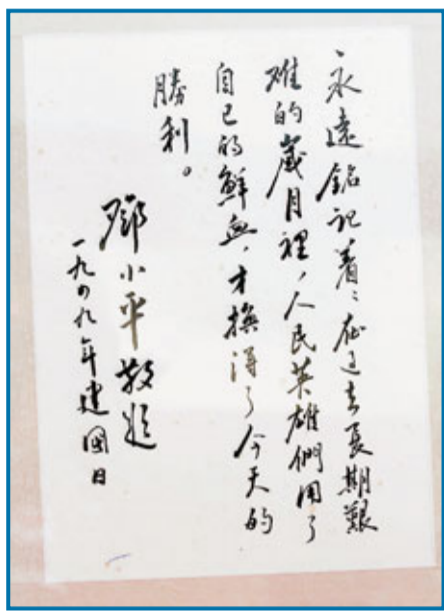 永遠銘記着：在過去長期艱
难的歲月裡，人民英雄們用了
自己的鮮血，才換得了今天的
勝利。
鄧小平敬题
一九四九年建國日